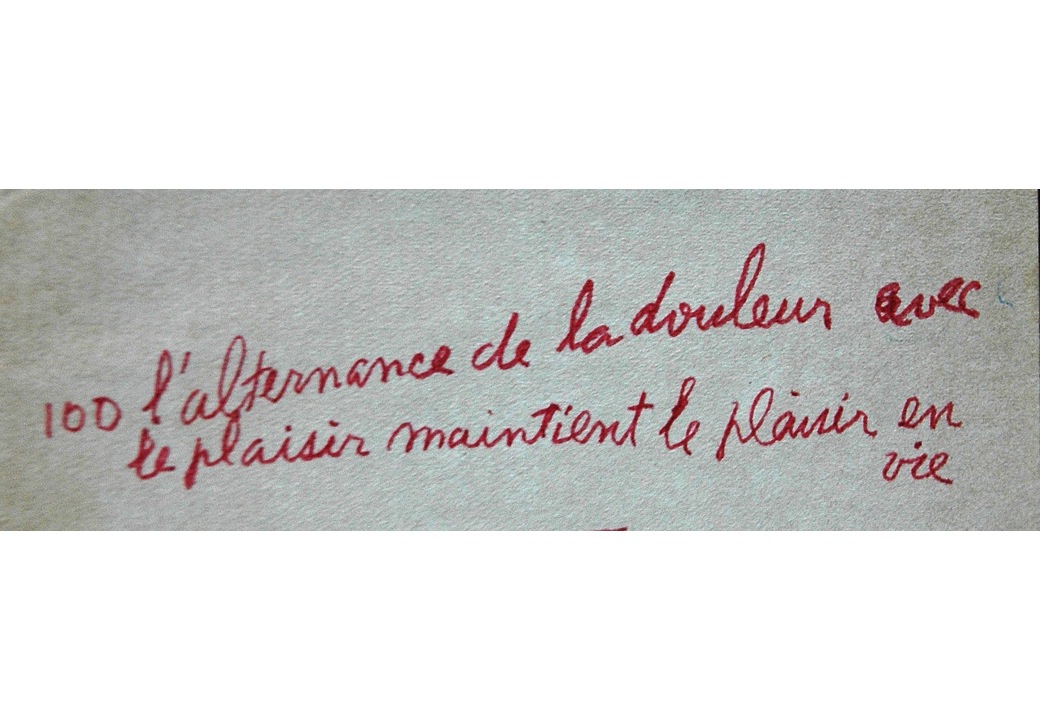 100 l'alternance de la douleur avec
le plaisir maintient le plaisir en
vie